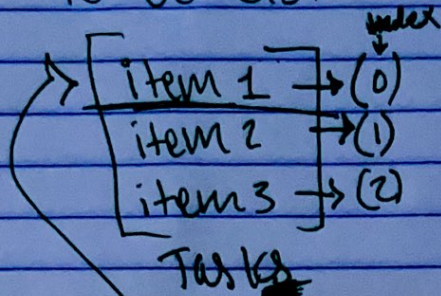 index
item 1 → (0)
item 2 → (1)
item 3 → (2)
Tasks